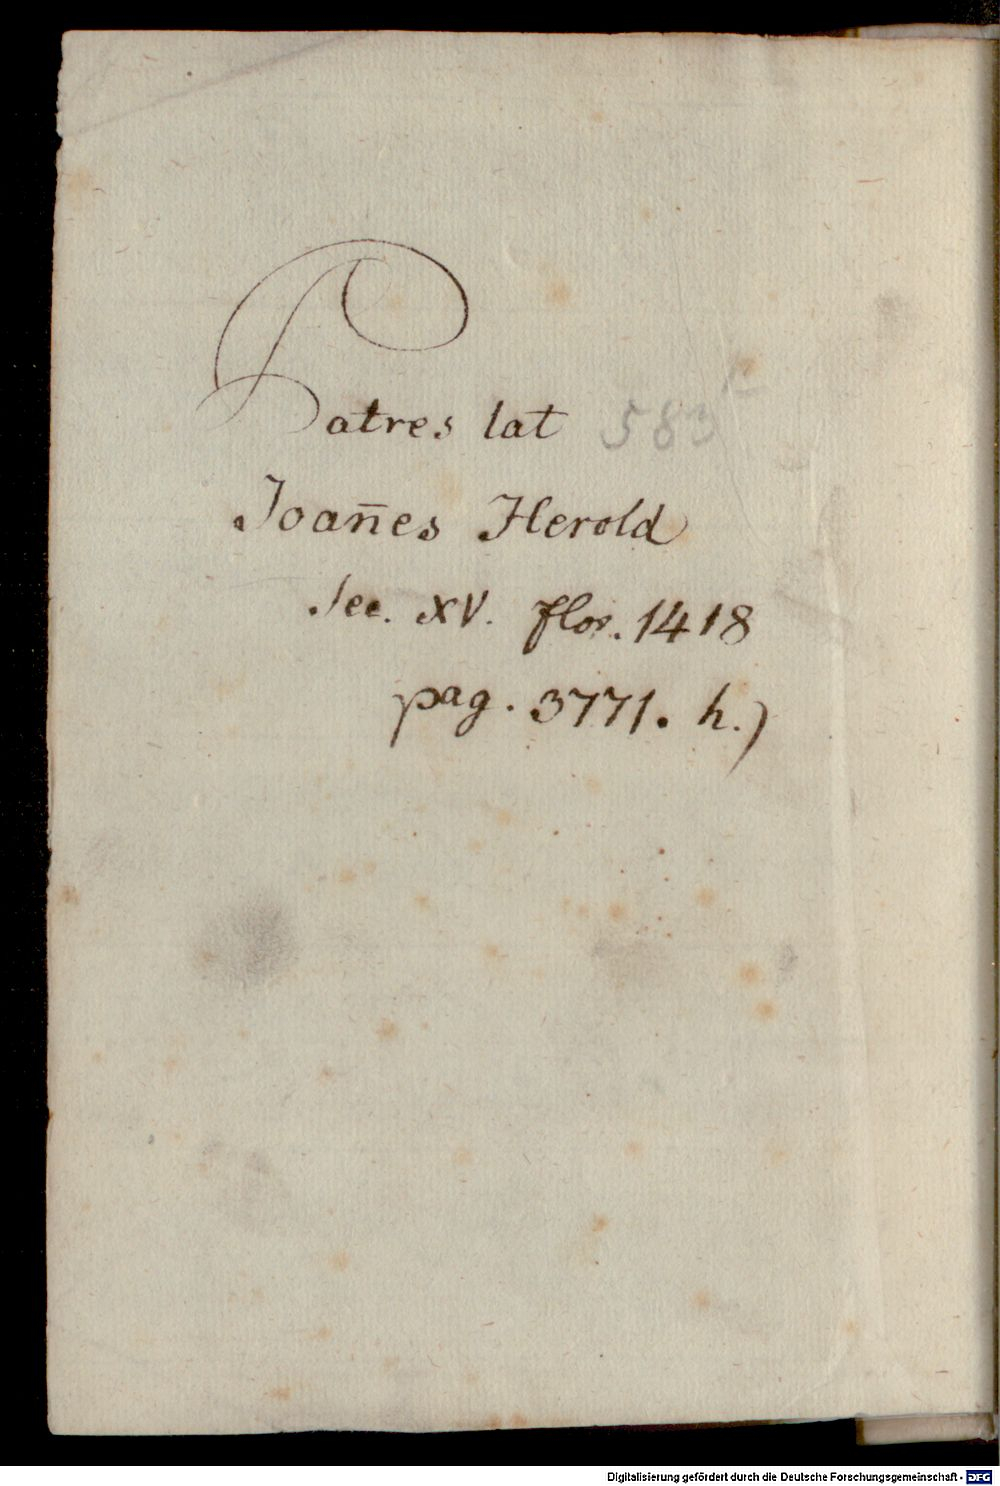 Patres lat 583
Joan̄es Herold
Sec. XV. flor. 1418
pag. 3771. h.)
Digitalisierung gefördert durch die Deutsche Forschungsgemeinschaft - DFG